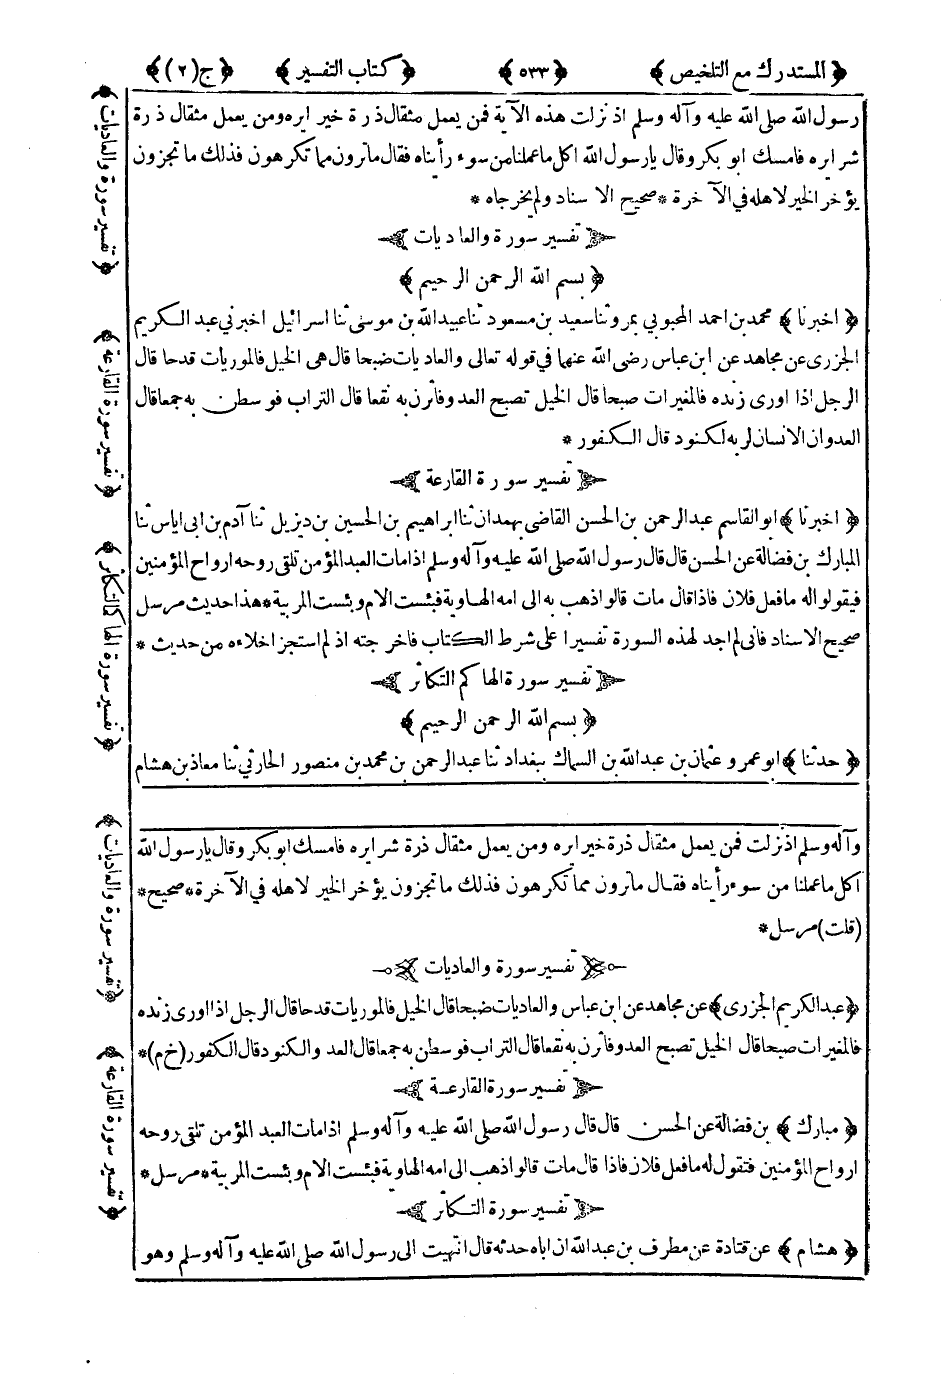 ﴿ المستدرك مع التلخيص ﴾ ﴿ ٥٣٣ ﴾ ﴿ كتاب التفسير ﴾ ﴿ ج (٢) ﴾
رسول الله صلى الله عليه وآله وسلم اذ نزلت هذه الآية فمن يعمل مثقال ذرة خيرا يره ومن يعمل مثقال ذرة
شرا يره فامسك ابو بكر وقال يا رسول الله اكل ما عملنا من سوء رأيناه فقال ما ترون مما تكرهون فذلك ما تجزون
يؤخر الخير لاهله في الآخرة * صحيح الاسناد ولم يخرجاه *
تفسير سورة والعاديات
﴿ بسم الله الرحمن الرحيم ﴾
﴿ اخبرنا ﴾ محمد بن احمد المحبوبي بمرو ثنا سعيد بن مسعود ثنا عبيد الله بن موسى ثنا اسرائيل اخبرني عبد الكريم
الجزرى عن مجاهد عن ابن عباس رضى الله عنهما في قوله تعالى والعاديات ضبحا قال هى الخيل فالموريات قدحا قال
الرجل اذا اورى زنده فالمغيرات صبحا قال الخيل تصبح العدو فأثرن به نقعا قال التراب فوسطن به جمعا قال
العدو ان الانسان لربه لكنود قال الكفور *
تفسير سورة القارعة
﴿ اخبرنا ﴾ ابو القاسم عبد الرحمن بن الحسن القاضى بهمدان ثنا ابراهيم بن الحسين بن ديزيل ثنا آدم بن ابى اياس ثنا
المبارك بن فضالة عن الحسن قال قال رسول الله صلى الله عليه وآله وسلم اذا مات العبد المؤمن تلقى روحه ارواح المؤمنين
فيقولوا له ما فعل فلان فاذا قال مات قالوا ذهب به الى امه الهاوية فبئست الام وبئست المربية * هذا حديث مرسل
صحيح الاسناد فانى لم اجد لهذه السورة تفسيرا على شرط الكتاب فاخرجته اذ لم استجز اخلاءه من حديث *
تفسير سورة الهاكم التكاثر
﴿ بسم الله الرحمن الرحيم ﴾
﴿ حدثنا ﴾ ابو عمرو عثمان بن عبد الله بن السماك ببغداد ثنا عبد الرحمن بن محمد بن منصور الحارثي ثنا معاذ بن هشام
وآله وسلم اذ نزلت فمن يعمل مثقال ذرة خيرا يره ومن يعمل مثقال ذرة شرا يره فامسك ابو بكر وقال يا رسول الله
اكل ما عملنا من سوء رأيناه فقال ما ترون مما تكرهون فذلك ما تجزون يؤخر الخير لاهله في الآخرة * صحيح *
(قلت) مرسل *
تفسير سورة والعاديات
﴿ عبد الكريم الجزرى ﴾ عن مجاهد عن ابن عباس والعاديات ضبحا قال الخيل فالموريات قدحا قال الرجل اذا اورى زنده
فالمغيرات صبحا قال الخيل تصبح العدو فأثرن به نقعا قال التراب فوسطن به جمعا قال العدو والكنود قال الكفور (خ م) *
تفسير سورة القارعة
﴿ مبارك ﴾ بن فضالة عن الحسن قال قال رسول الله صلى الله عليه وآله وسلم اذا مات العبد المؤمن تلقى روحه
ارواح المؤمنين فتقول له ما فعل فلان فاذا قال مات قالوا ذهب الى امه الهاوية فبئست الام وبئست المربية * مرسل *
تفسير سورة التكاثر
﴿ هشام ﴾ عن قتادة عن مطرف بن عبد الله ان اباه حدثه قال انتهيت الى رسول الله صلى الله عليه وآله وسلم وهو
﴿ تفسير سورة والعاديات ﴾
﴿ تفسير سورة القارعة ﴾
﴿ تفسير سورة الهاكم التكاثر ﴾
﴿ تفسير سورة والعاديات ﴾
﴿ تفسير سورة القارعة ﴾